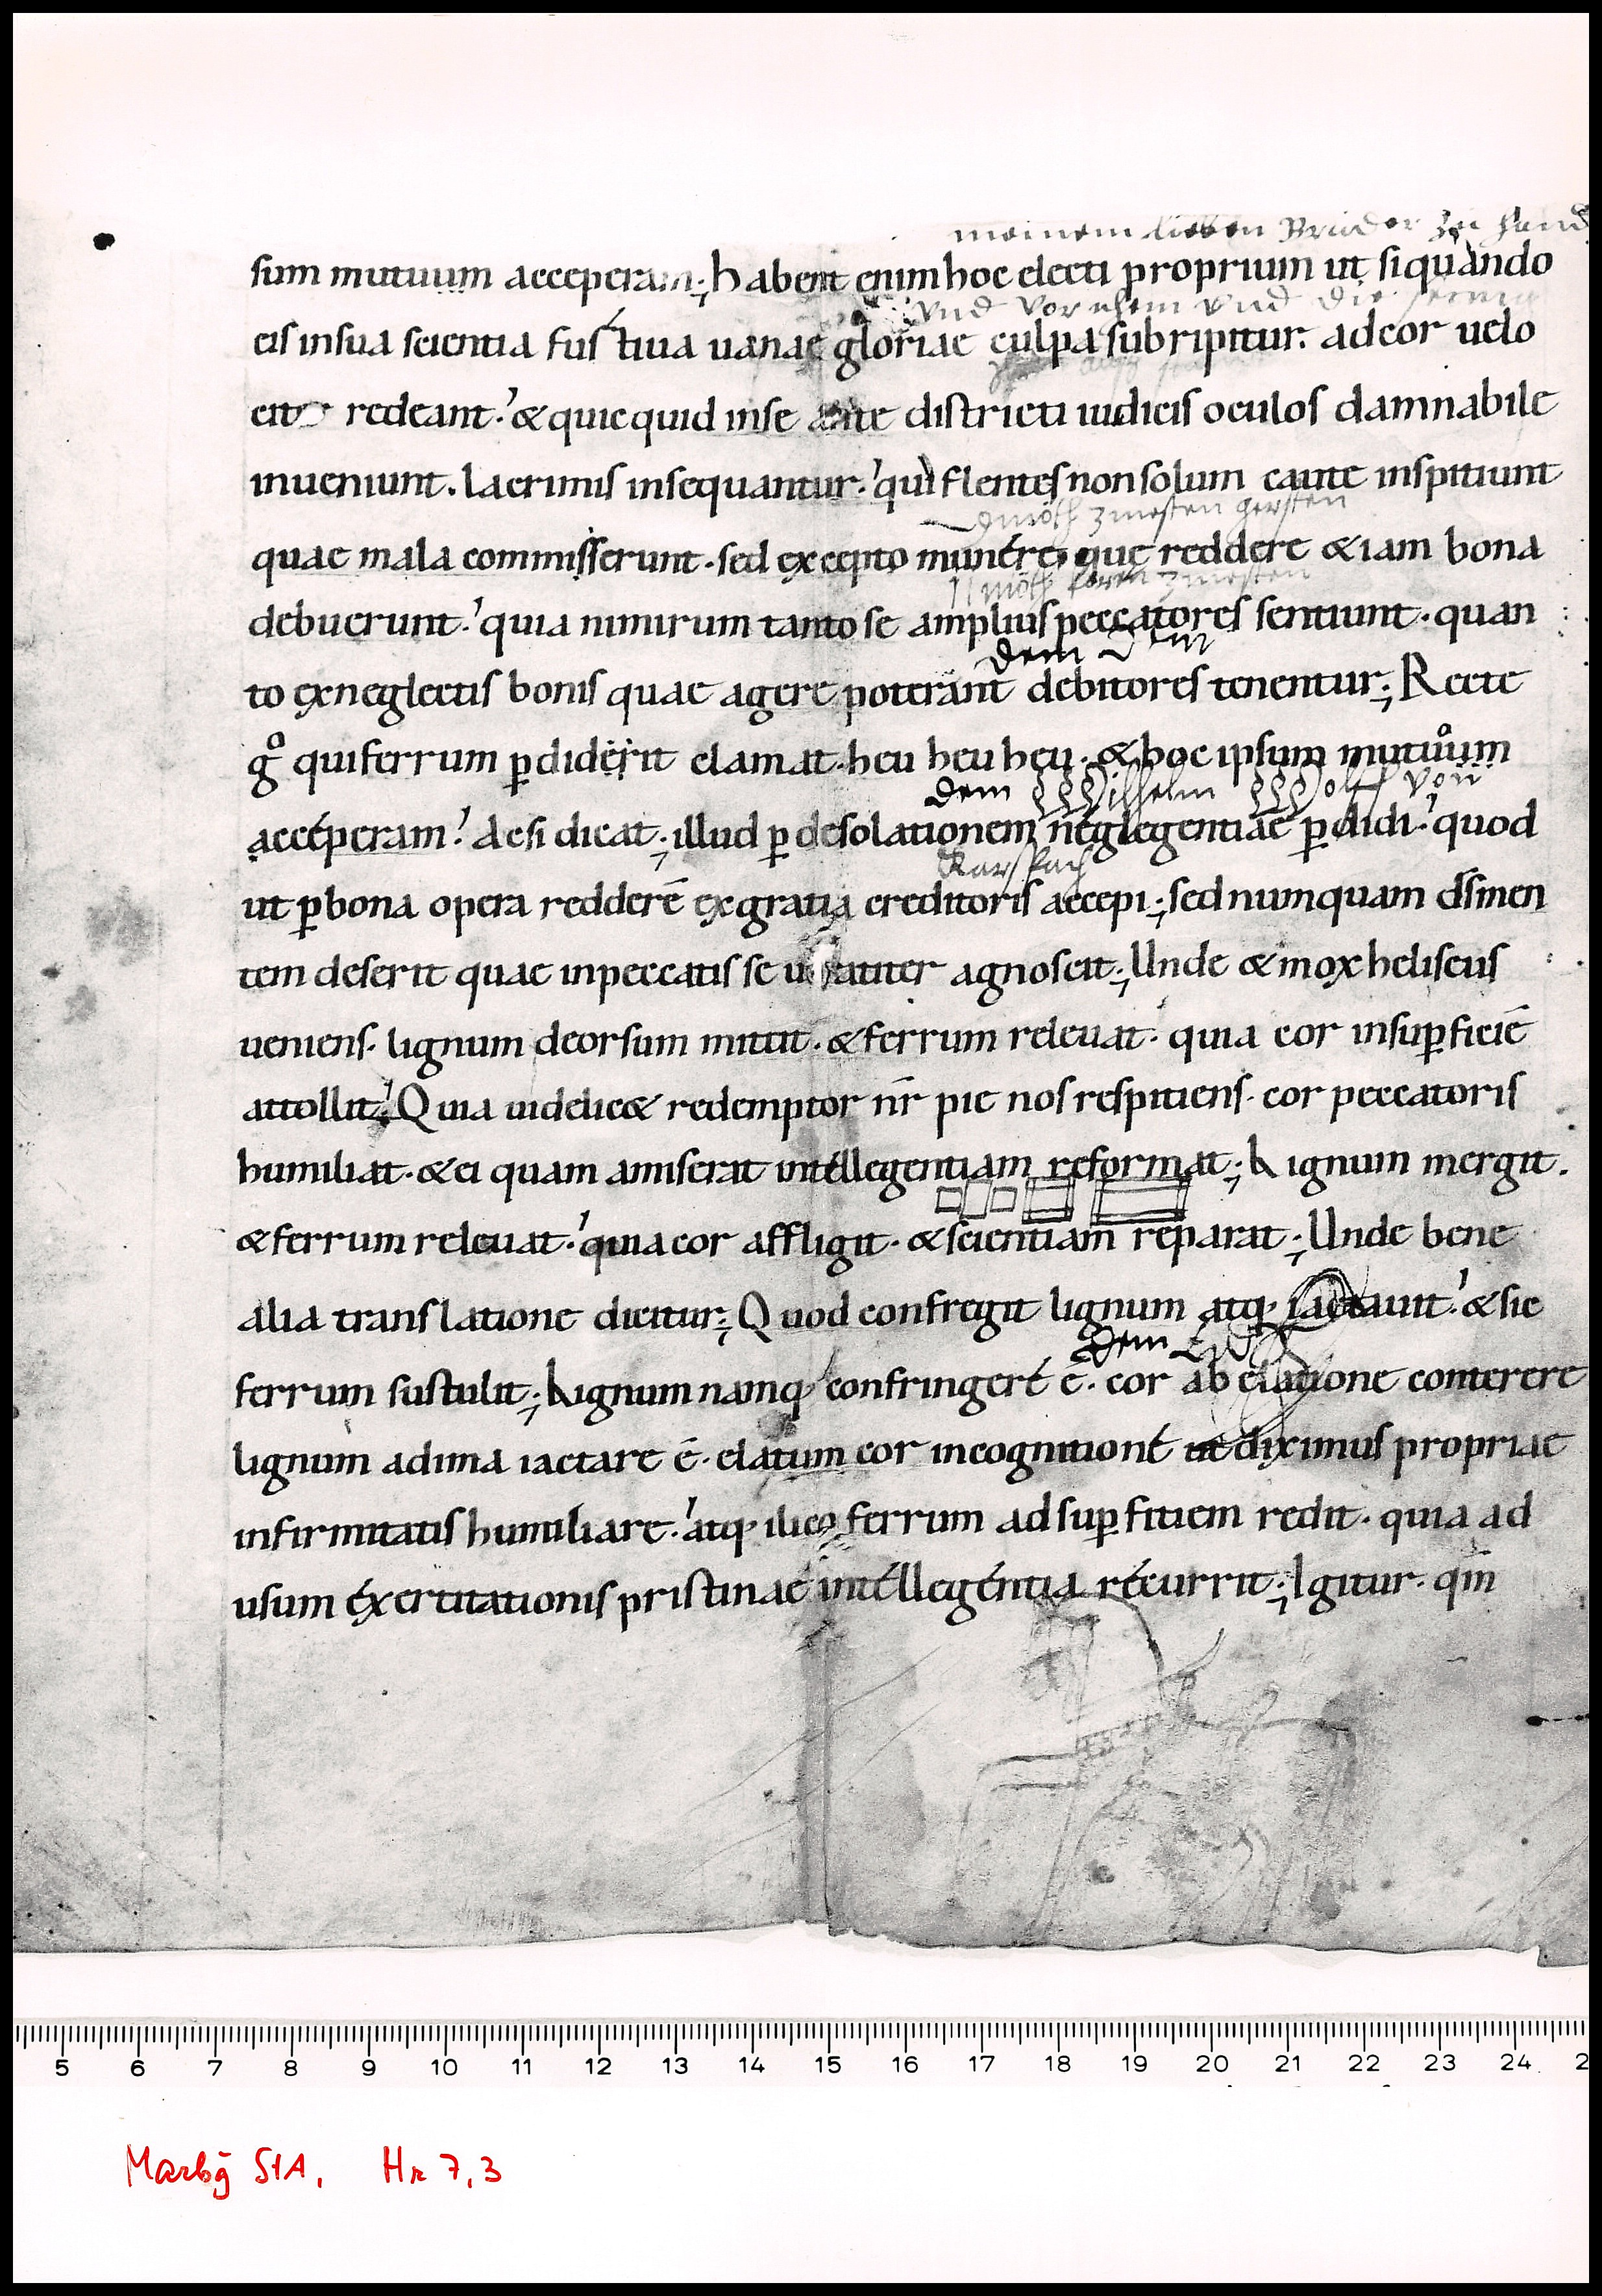 meinem lieben Bruder zu hand
sum mutuum acceperam; habent enim hoc electi proprium ut si quando
und und die
eis in sua scientia furtiua uanae gloriae culpa subripitur. ad cor uelo
citer redeant. & quicquid in se ante districti iudicis oculos damnabile
inueniunt. lacrimis insequantur. qui flentes non solum caute inspitiunt
gersten
quae mala commisserunt. sed ex cepto munere que reddere & iam bona
debuerunt. quia nimirum tanto se amplius peccatores sentiunt. quan
dem
to ex neglectis bonis quae agere poterant debitores tenentur; Recte
gͦ qui ferrum ꝑdiderit clamat. heu heu heu. & hoc ipsum mutuum
dem Wilhelm Wolff von
acceperam. Ac si dicat; illud ꝑ desolationem neglegentiae ꝑdidi. quod
ut ꝑ bona opera redderē ex gratia creditoris accepi; sed numquam d̄s men
tem deserit quae in peccatis se agnoscit; Unde & mox heliseus
ueniens. lignum deorsum mittit. & ferrum releuat. quia cor in suꝑficiē
attollit; Quia uidelic& redemptor nr̄ pie nos respitiens. cor peccatoris
humiliat. & ei quam amiserat intellegentiam reformat; Lignum mergit.
& ferrum releuat. quia cor affligit. & scientiam reparat; Unde bene
alia translatione dicitur; Quod confregit lignum atq· iactauit. & sic
dem
ferrum sustulit; Lignum namq· confringere ē. cor ab elatione conterere
lignum ad ima iactare ē. elatum cor in cognitione ut diximus propriae
infirmitatis humiliare. atq· ilico ferrum ad suꝑfitiem redit. quia ad
usum exertitationis pristinae intellegentia recurrit; Igitur. qm̄
5 6 7 8 9 10 11 12 13 14 15 16 17 18 19 20 21 22 23 24 2
Marbg StA, Hr 7,3